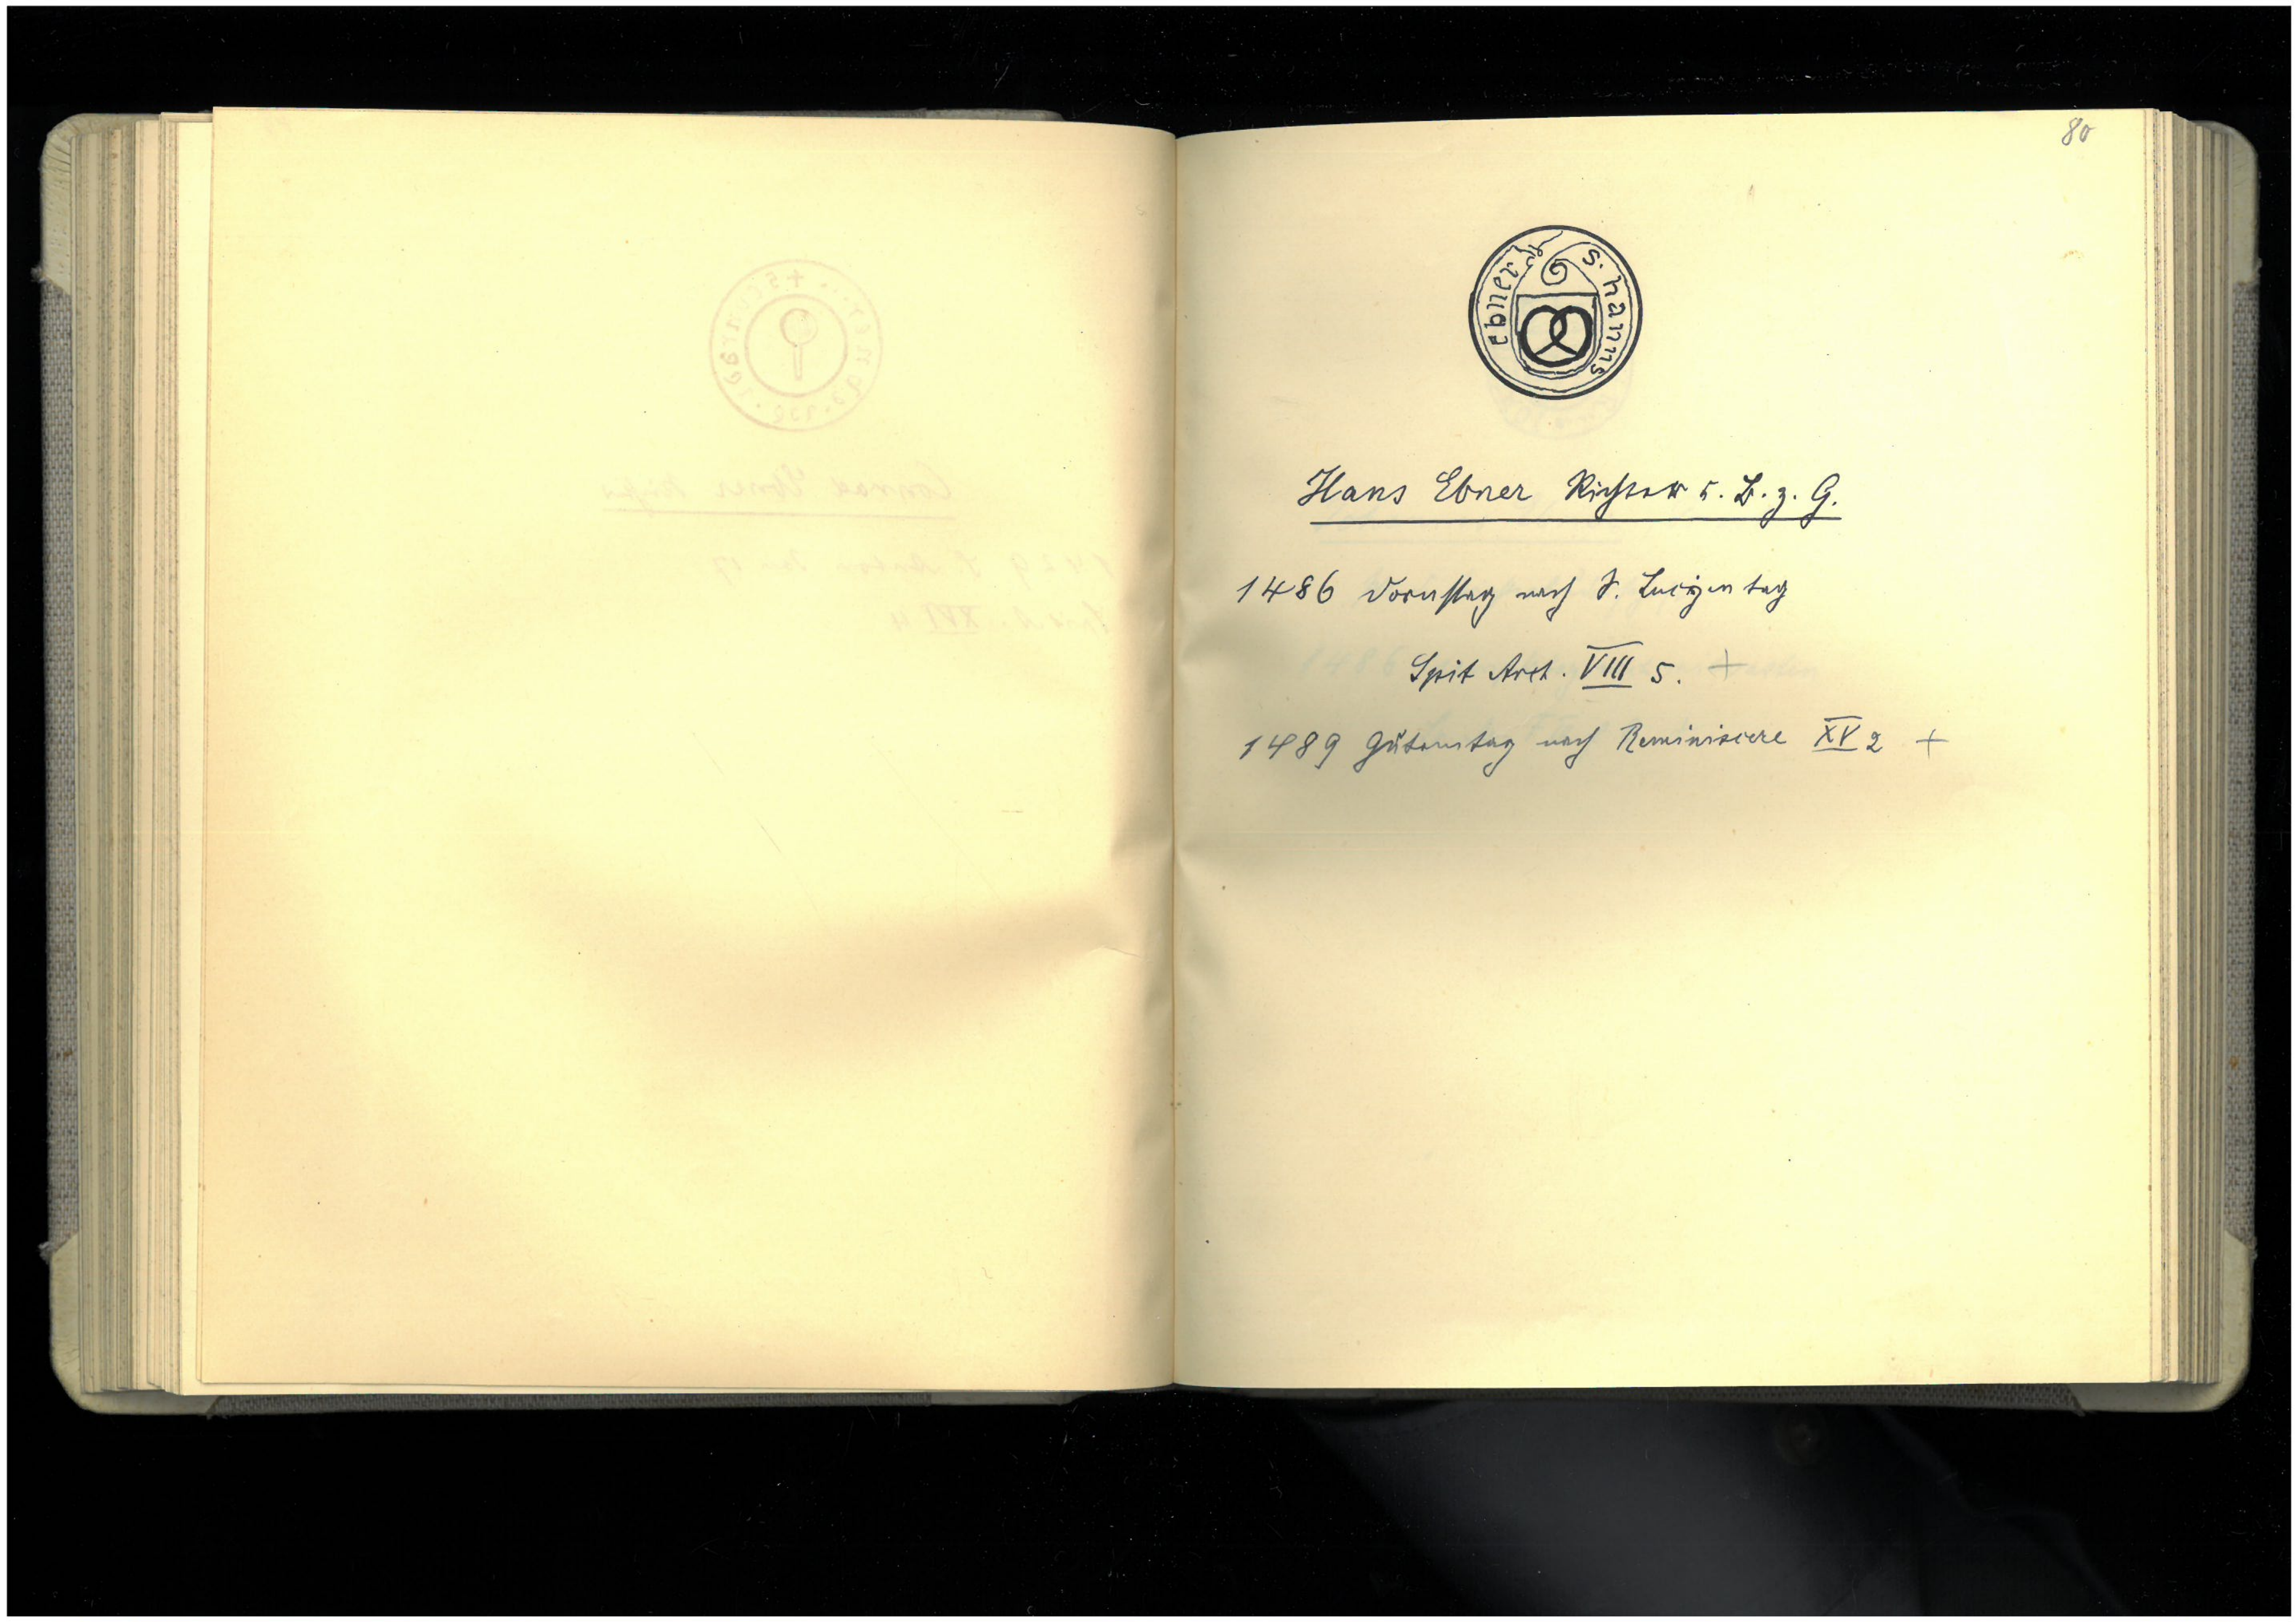 80
s. hanns ebner
Hans Ebner Richter u. B. z. G.
1486 Dornstag nach S. Luciyen tag
Spit Arch. VIII 5. +
1489 Gůtemtag nach Reminiscere XV 2 +